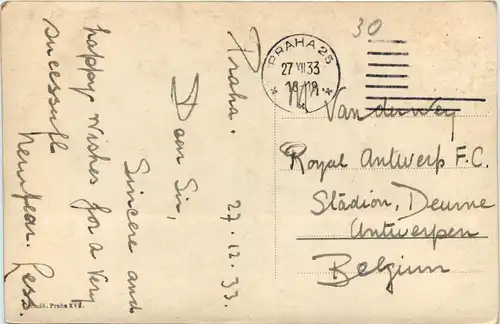 Praha. 27.12.33.
Dear Sir,
Sincere and
happy wishes for a very
sucessufll
newyear. Less.
30
PRAHA 25
27 XII 33
Van der Wey
Royal Antwerp F.C.
Stadion, Deurne
Antwerpen
Belgium
Praha XVI.